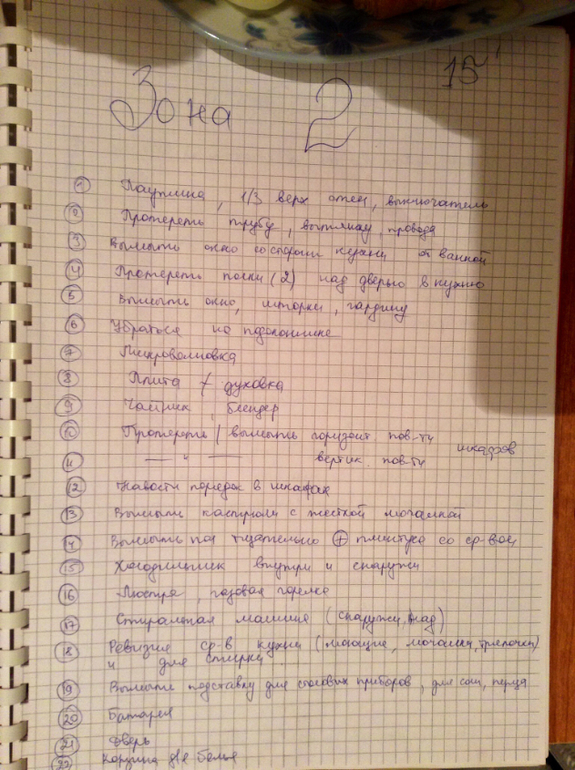 15'
Зона 2
1 Паутина, 1/3 верх стен, выключатель
2 Протереть трубу, вытяжку, провода
3 Вымыть окно со стороны кухни от ванной
4 Протереть полки (2) над дверью в кухню
5 Вымыть окно, шторки, гардину
6 Убраться на подоконнике
7 Микроволновка
8 Плита + духовка
9 Чайник, блендер
10 Протереть / вымыть горизонт. пов-ти шкафов
11 — " — вертик. пов-ти
12 Навести порядок в шкафах
13 Вымыть кастрюли с жесткой мочалкой
14 Вымыть пол тщательно + плинтуса со ср-вом
15 Холодильник внутри и снаружи
16 Люстра, газовая горелка
17 Стиральная машина (снаружи, над)
18 Ревизия ср-в кухни (моющие, мочалки, тряпочки)
и для стирки.
19 Вымыть подставку для столовых приборов, для соли, перца
20 Батарея
21 Дверь
22 Корзина для белья